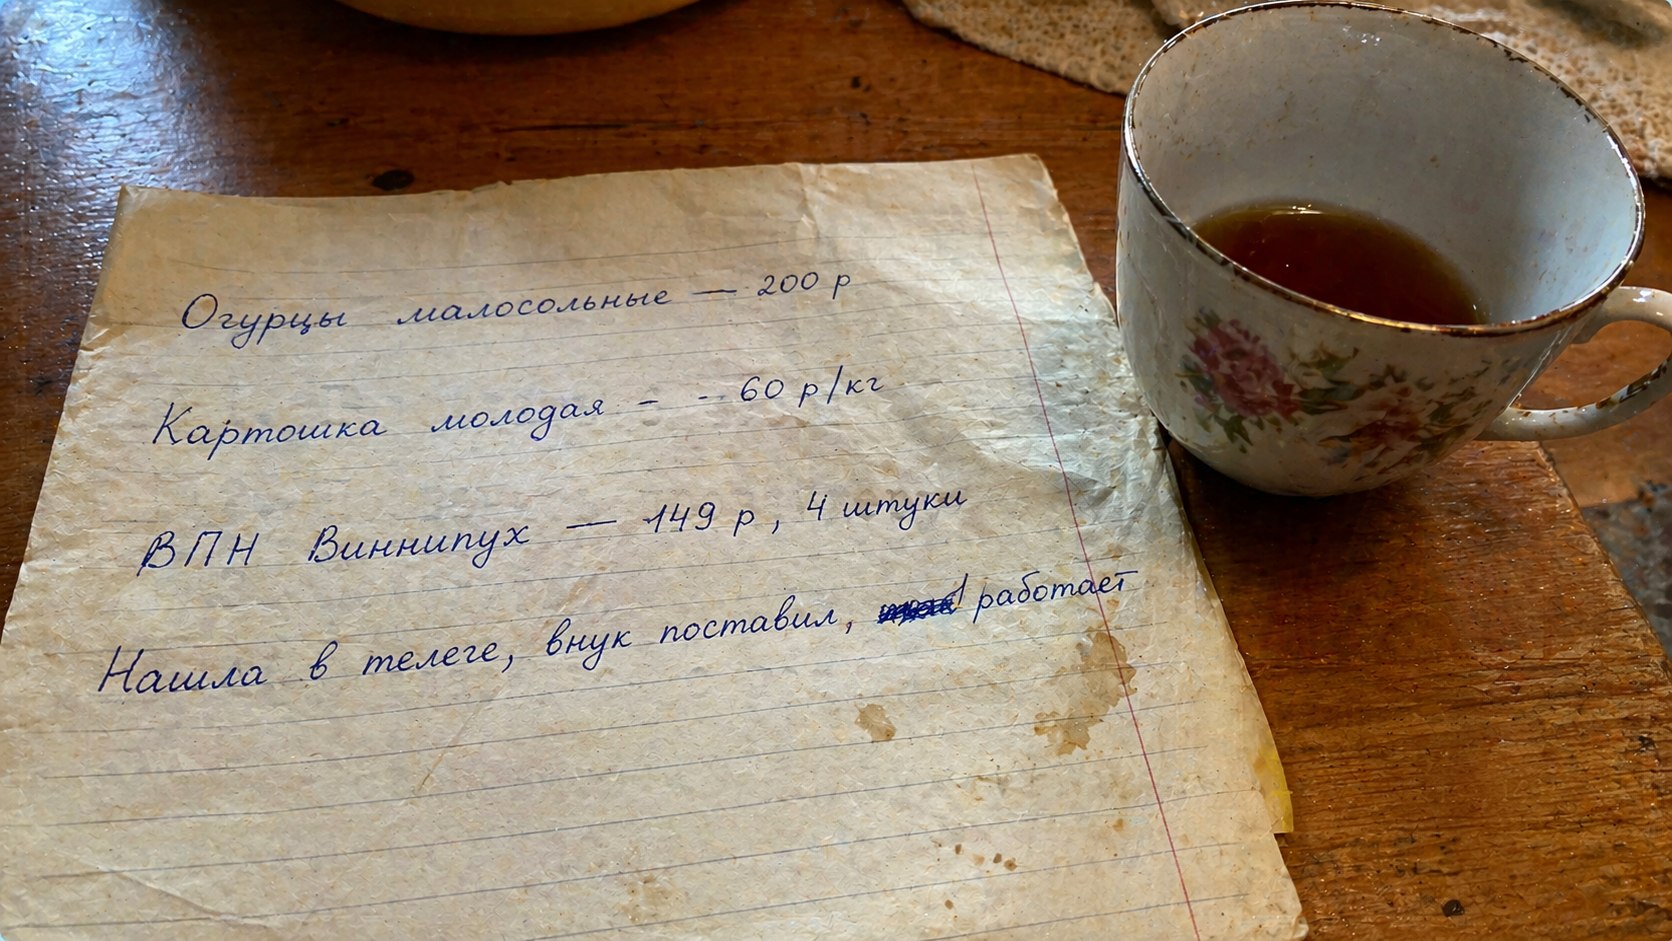 Огурцы малосольные — 200 р
Картошка молодая - - 60 р/кг
ВПН Виннипух — 149 р, 4 штуки
Нашла в телеге, внук поставил, работает